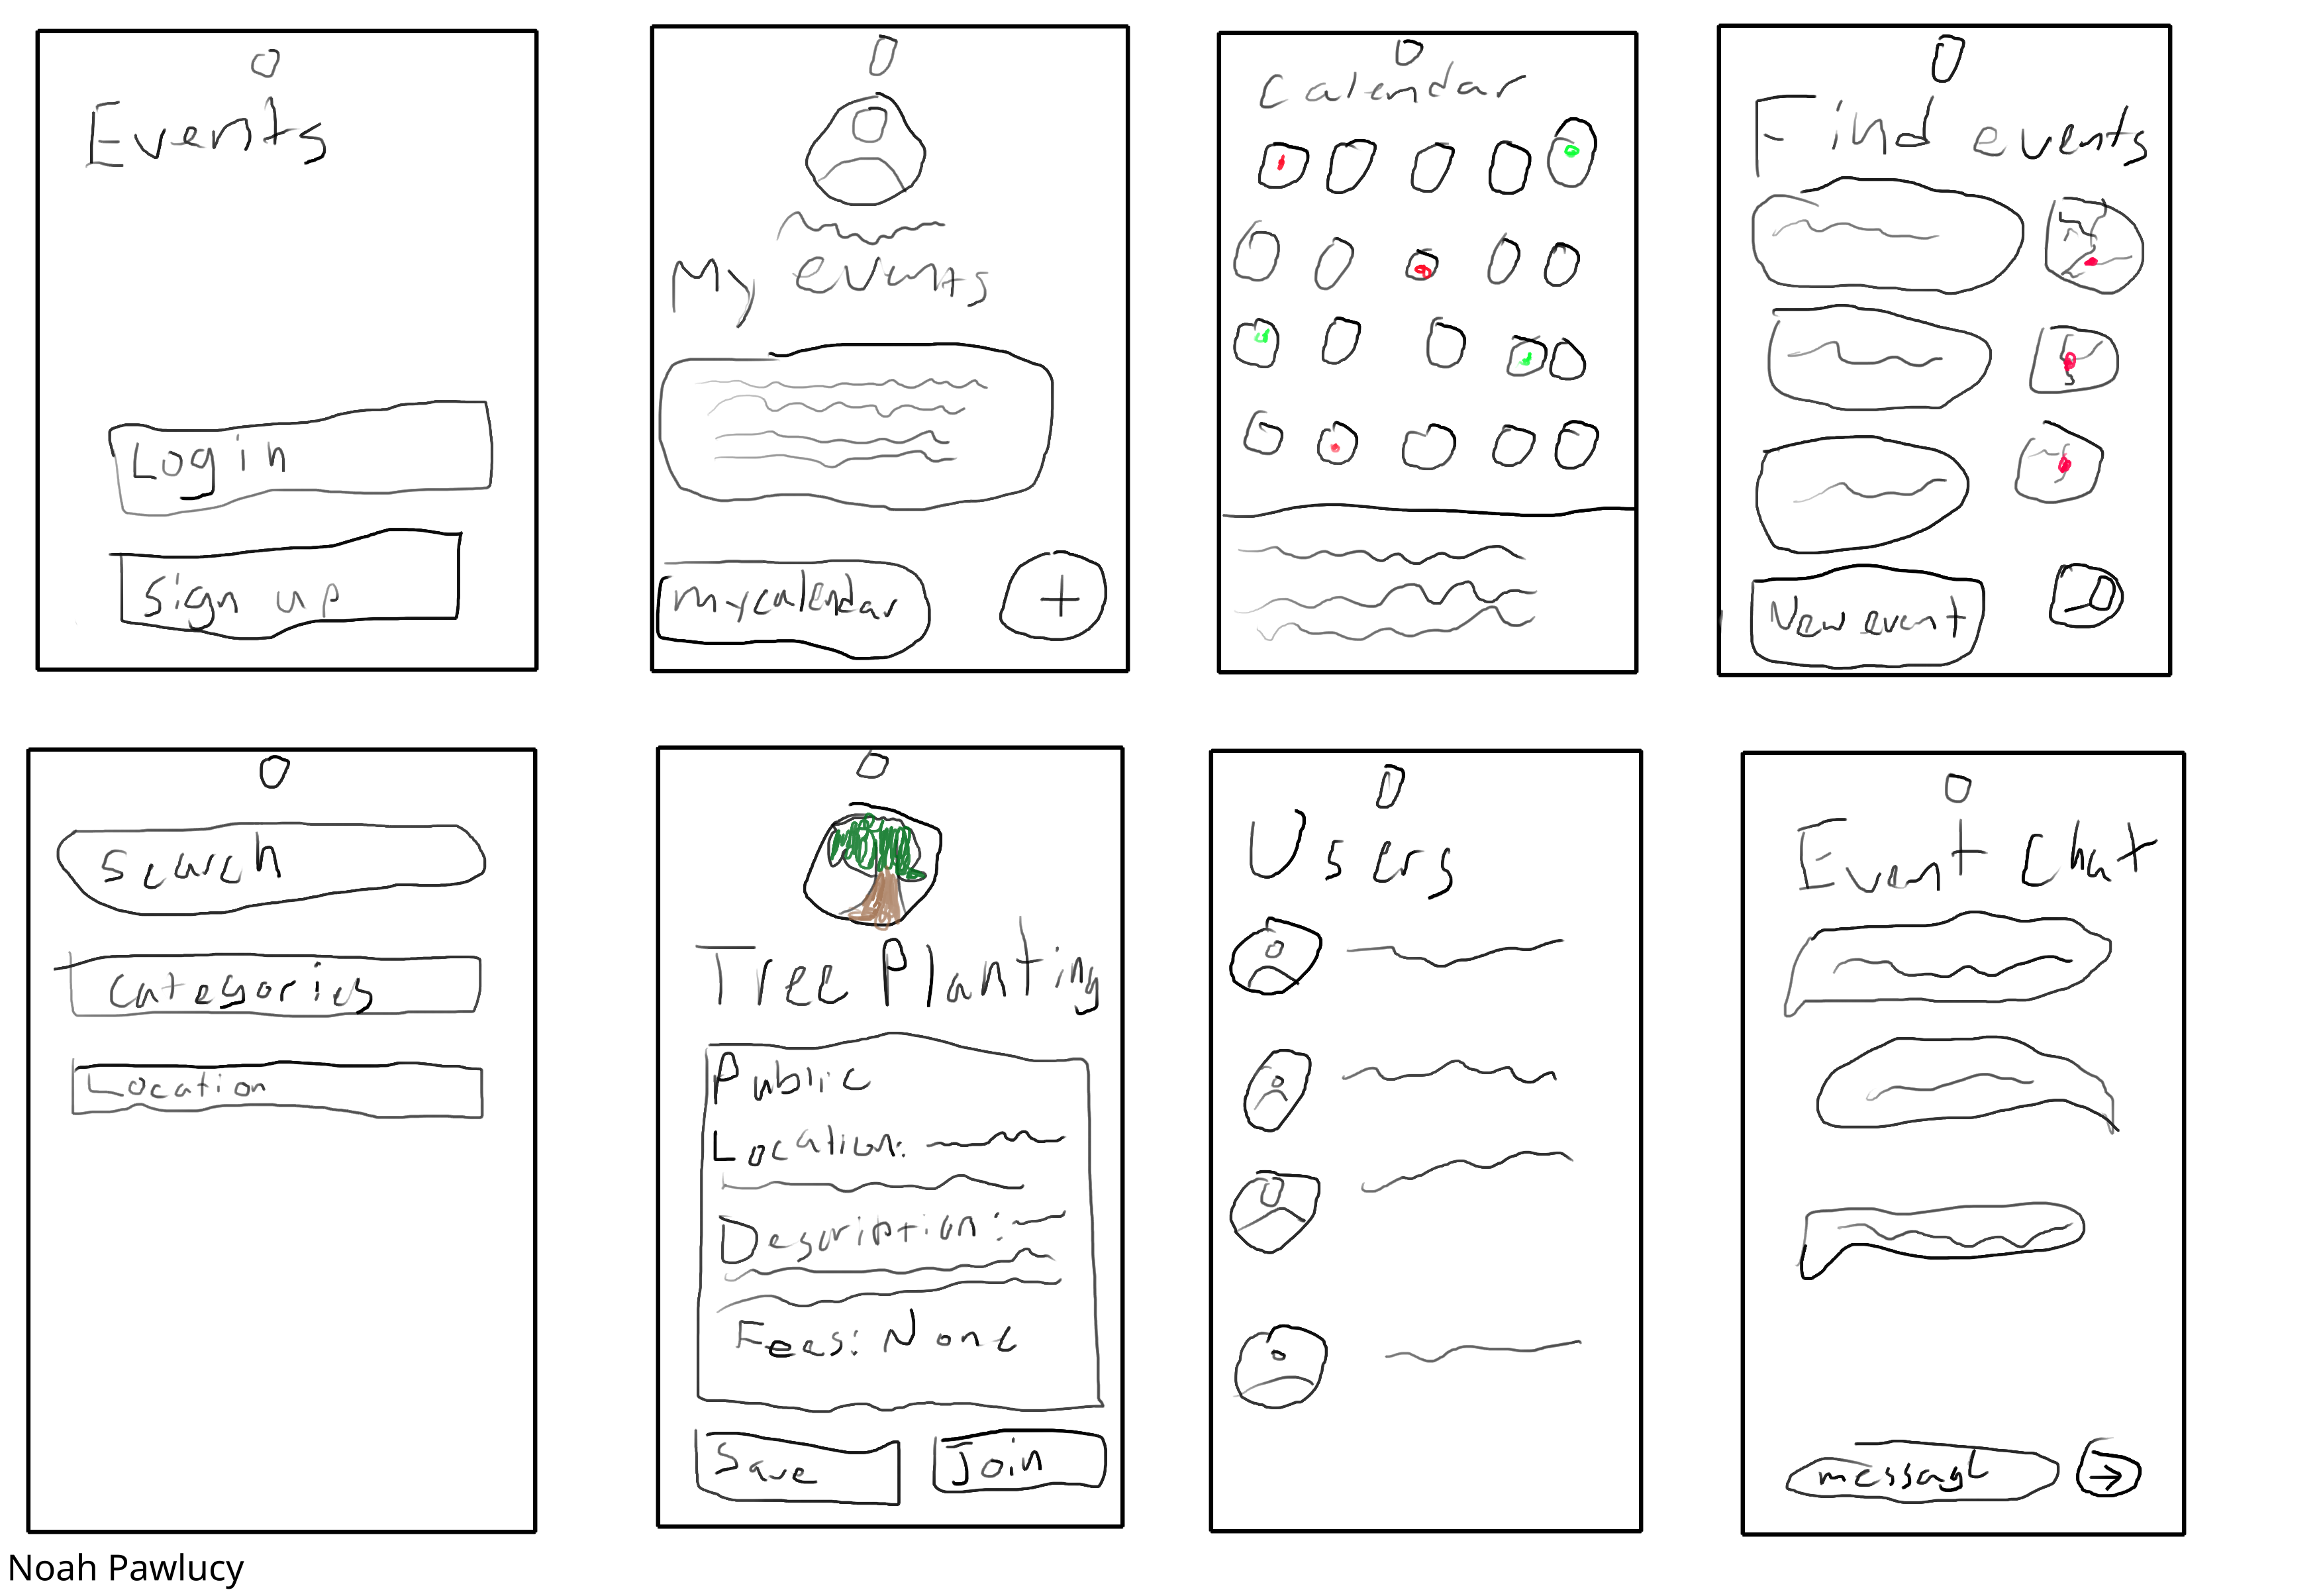 Events
Login
Sign up
My events
my calendar
+
Calendar
Find events
New event
Search
Categories
Location
Tree Planting
Public
Location:
Description:
Fees: None
Save
Join
Users
Event Chat
message
Noah Pawlucy